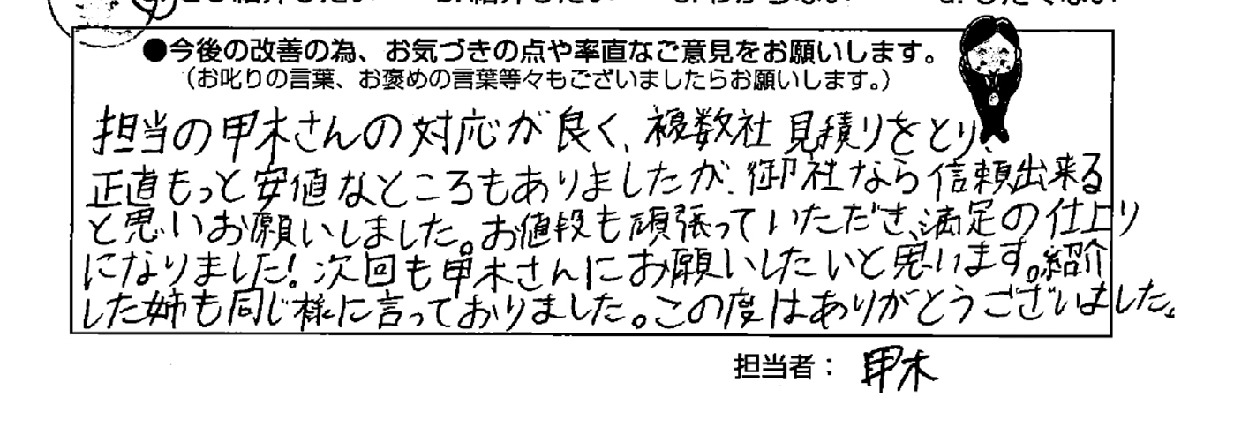 ●今後の改善の為、お気づきの点や率直なご意見をお願いします。
（お叱りの言葉、お褒めの言葉等々もございましたらお願いします。）
担当の甲木さんの対応が良く、複数社見積りをとり、
正直もっと安値なところもありましたが、御社なら信頼出来る
と思いお願いしました。お値段も頑張っていただき、満足の仕上り
になりました！次回も甲木さんにお願いしたいと思います。紹介
した姉も同じ様に言っておりました。この度はありがとうございました。
担当者： 甲木